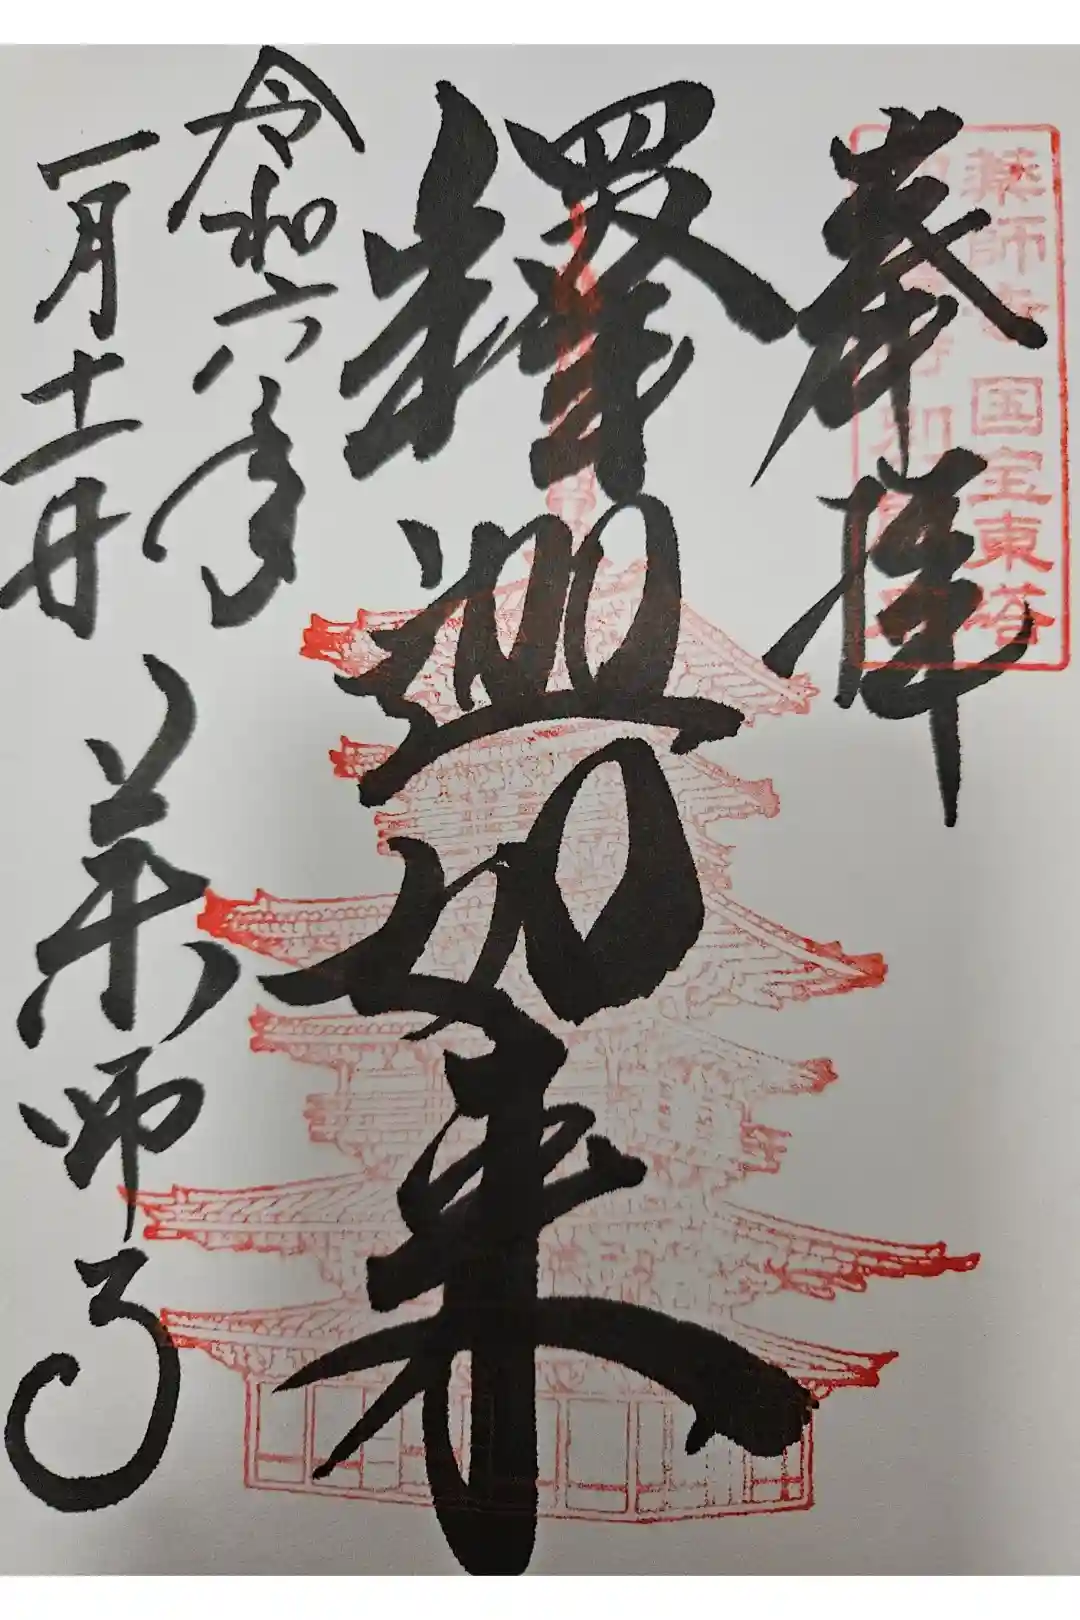 薬師寺 国宝東塔
奉拝
釋迦如来
令和六年
一月十一日
薬師寺